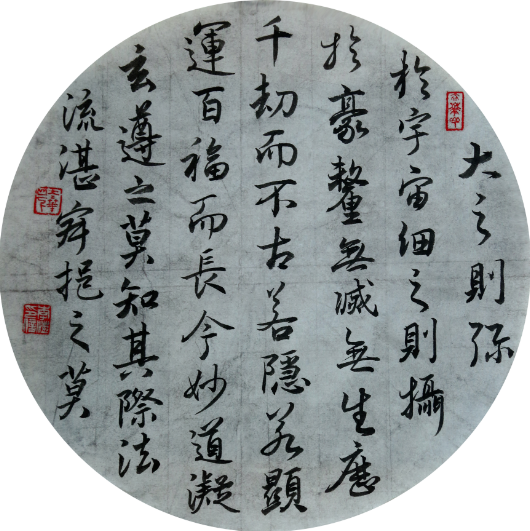 大之則彌
於宇宙細之則攝
於豪釐無滅無生歷
千劫而不古若隱若顯
運百福而長今妙道凝
玄遵之莫知其際法
流湛寂挹之莫